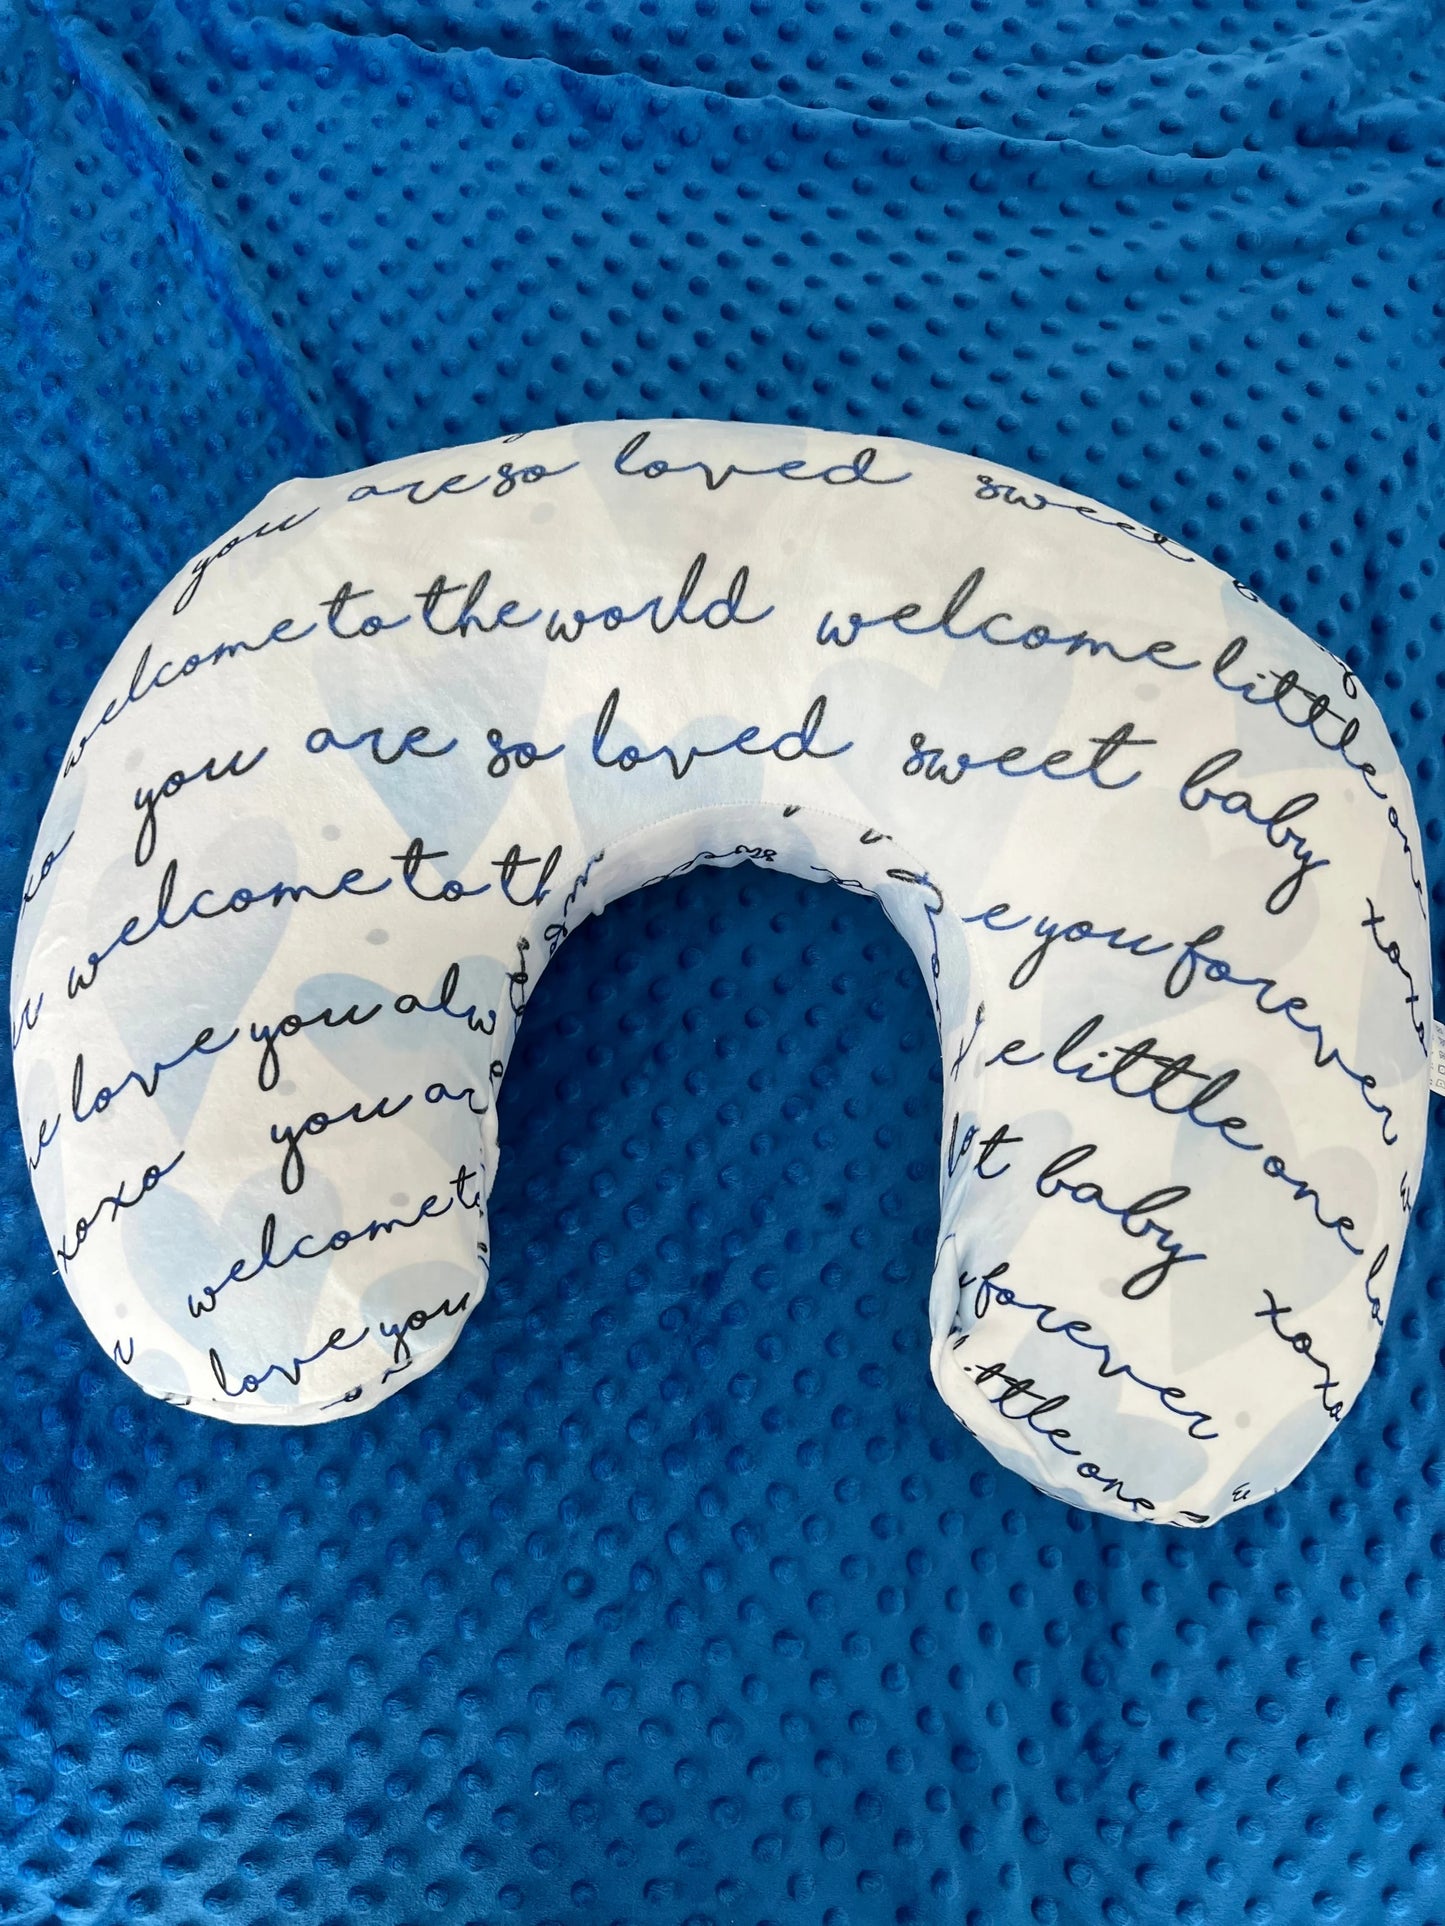 you are so loved sweet
welcome to the world welcome little one
you are so loved sweet baby xoxo
welcome to th
e you forever
love you alw
e little one
xoxo you ar
baby xoxo
welcome t
forever
love you
ttle one